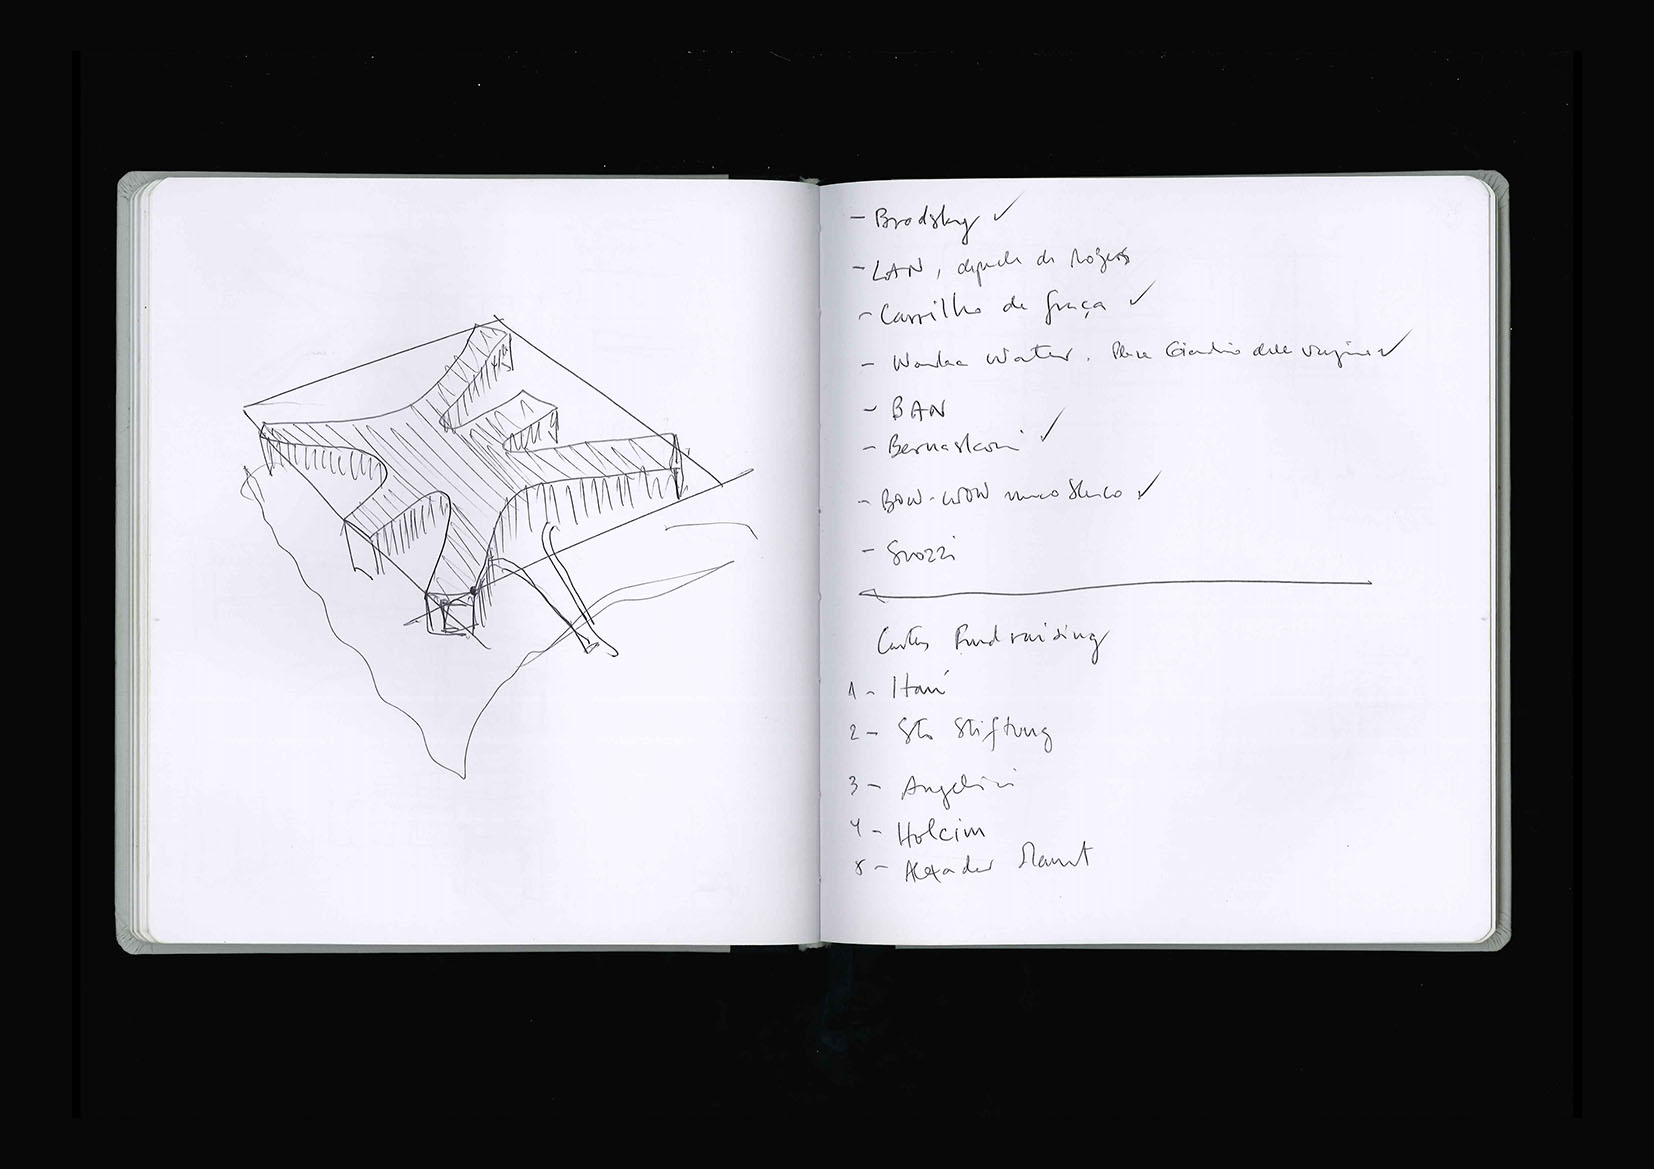 - Brodsky ✓
- LAN, depende de Rogers
- Carrilho da Graça ✓
- Warka Water. Giardino delle Vergini ✓
- BAN
- Bernaskoni ✓
- BOW-WOW ✓
- Snozzi
Cartas Fundraising
1 - Itaú
2 - Sto Stiftung
3 - Angelini
4 - Holcim
- Alexader Mamut